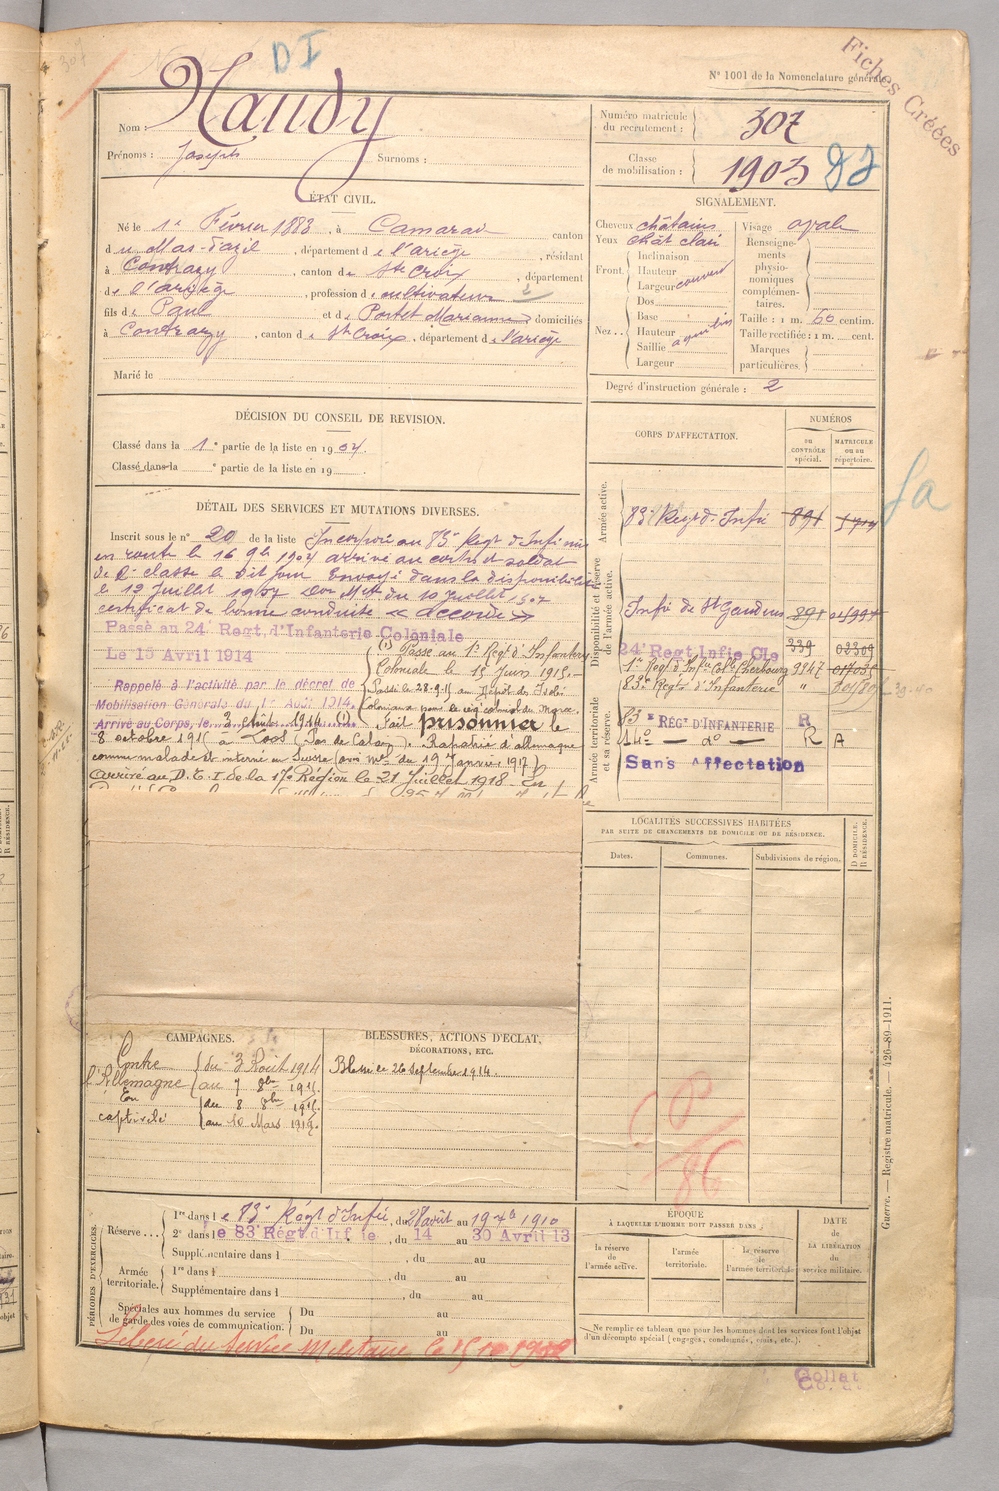 D I
Fiches Créées
N° 1001 de la Nomenclature générale.
Nom : Naudy
Prénoms : Joseph Surnoms :
Numéro matricule du recrutement : 307
Classe de mobilisation : 1903
ÉTAT CIVIL.
Né le 1er Février 1883, à Camarade canton
du Mas-d'azil, département de l'ariège, résidant
à Contrazy, canton de Ste Croix, département
de l'ariège, profession de cultivateur
fils de Paul et de Portet Marianne domiciliés
à Contrazy, canton de Ste Croix, département de l'ariège
Marié le
SIGNALEMENT.
Cheveux châtains
Yeux chât clair
Front. Inclinaison
Hauteur
Largeur couvert
Nez.. Dos
Base
Hauteur
Saillie aquilin
Largeur
Visage ovale
Renseignements physionomiques complémentaires.
Taille : 1 m. 60 centim.
Taille rectifiée : 1 m. cent.
Marques particulières.
Degré d'instruction générale : 2
DÉCISION DU CONSEIL DE REVISION.
Classé dans la 1e partie de la liste en 1904.
Classé dans la e partie de la liste en 19
DÉTAIL DES SERVICES ET MUTATIONS DIVERSES.
Inscrit sous le n° 20 de la liste Incorporé au 83e Regt d'Infanterie
en route le 16 9bre 1904 arrivé au corps et soldat
de 2e classe le dit jour Envoyé dans la disponibilité
le 12 Juillet 1907
certificat de bonne conduite « accordé »
Passé au 24e Regt. d'Infanterie Coloniale
Le 15 Avril 1914
(1) Passé au 1er Régt d'Infanterie
Coloniale le 15 Juin 1915.
Rappelé à l'activité par le décret de
Mobilisation Générale du 1er Août 1914.
Arrivé au Corps, le 3 août 1914 (1)
Fait prisonnier le
8 octobre 1915 à Loos (Pas de Calais). Rapatrié d'allemagne
comme malade et interné en Suisse (avis Mel du 19 Janvier 1917)
Arrivé au D. E. I. de la 17e Région le 21 Juillet 1918.
CORPS D'AFFECTATION.
NUMÉROS
AU CONTRÔLE spécial.
MATRICULE OU AU répertoire.
Armée active.
83e Regt d'Infie 891
Disponibilité et réserve de l'armée active.
Infie de St Gaudens 891
24e Regt Infie Cle 339 02309
1er Regt d'Infie Cole Cherbourg 9347
83e Regt d'Infanterie "
Armée territoriale et sa réserve.
83e RÉGt D'INFANTERIE R
14e — do — R A
Sans Affectation
LOCALITÉS SUCCESSIVES HABITÉES
PAR SUITE DE CHANGEMENTS DE DOMICILE OU DE RÉSIDENCE.
Dates. Communes. Subdivisions de région. D DOMICILE. R RÉSIDENCE.
CAMPAGNES.
Contre l'Allemagne du 3 Août 1914
au 7 8bre 1915.
En captivité du 8 8bre 1915.
au 10 Mars 1919.
BLESSURES, ACTIONS D'ÉCLAT,
DÉCORATIONS, ETC.
Blessé le 26 septembre 1914.
PÉRIODES D'EXERCICES.
Réserve...
1re dans le 83e Régt d'Infie, du 28 août au 19 7bre 1910
2e dans le 83e Régt d'Inf ie, du 14 au 30 Avril 13
Supplémentaire dans l , du au
Armée territoriale.
1re dans l , du au
Supplémentaire dans l , du au
Spéciales aux hommes du service de garde des voies de communication.
Du au
Du au
Libéré du Service Militaire le 15
ÉPOQUE
À LAQUELLE L'HOMME DOIT PASSER DANS
la réserve de l'armée active.
l'armée territoriale.
la réserve de l'armée territoriale
DATE DE LA LIBÉRATION du service militaire.
Ne remplir ce tableau que pour les hommes dont les services font l'objet
d'un décompte spécial (engagés, condamnés, omis, etc.).
Guerre. — Registre matricule. — 426-89-1911.